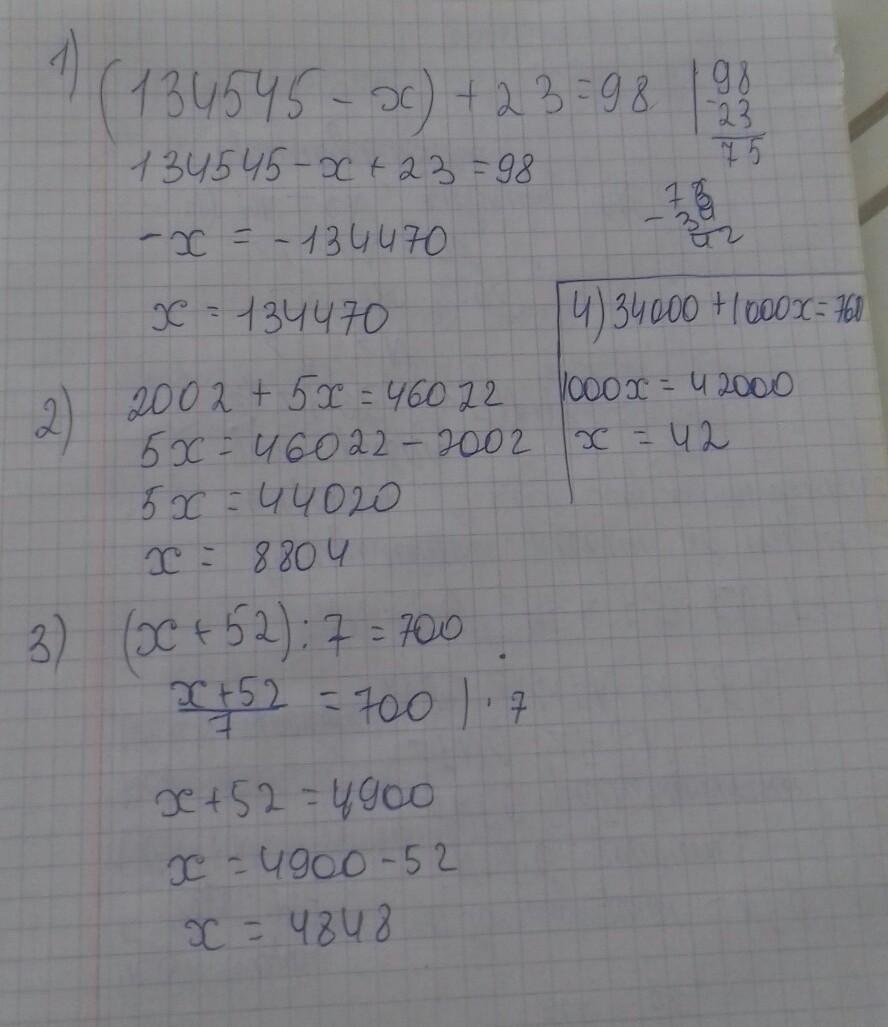 1)
(134545 - x) + 23 = 98
98
-23
75
134545 - x + 23 = 98
-x = -134470
x = 134470
42
2)
2002 + 5x = 46022
5x = 46022 - 2002
5x = 44020
x = 8804
4) 34000 + 1000x = 760
1000x = 42000
x = 42
3)
(x + 52) : 7 = 700
x+52
7
= 700 | · 7
x + 52 = 4900
x = 4900 - 52
x = 4848